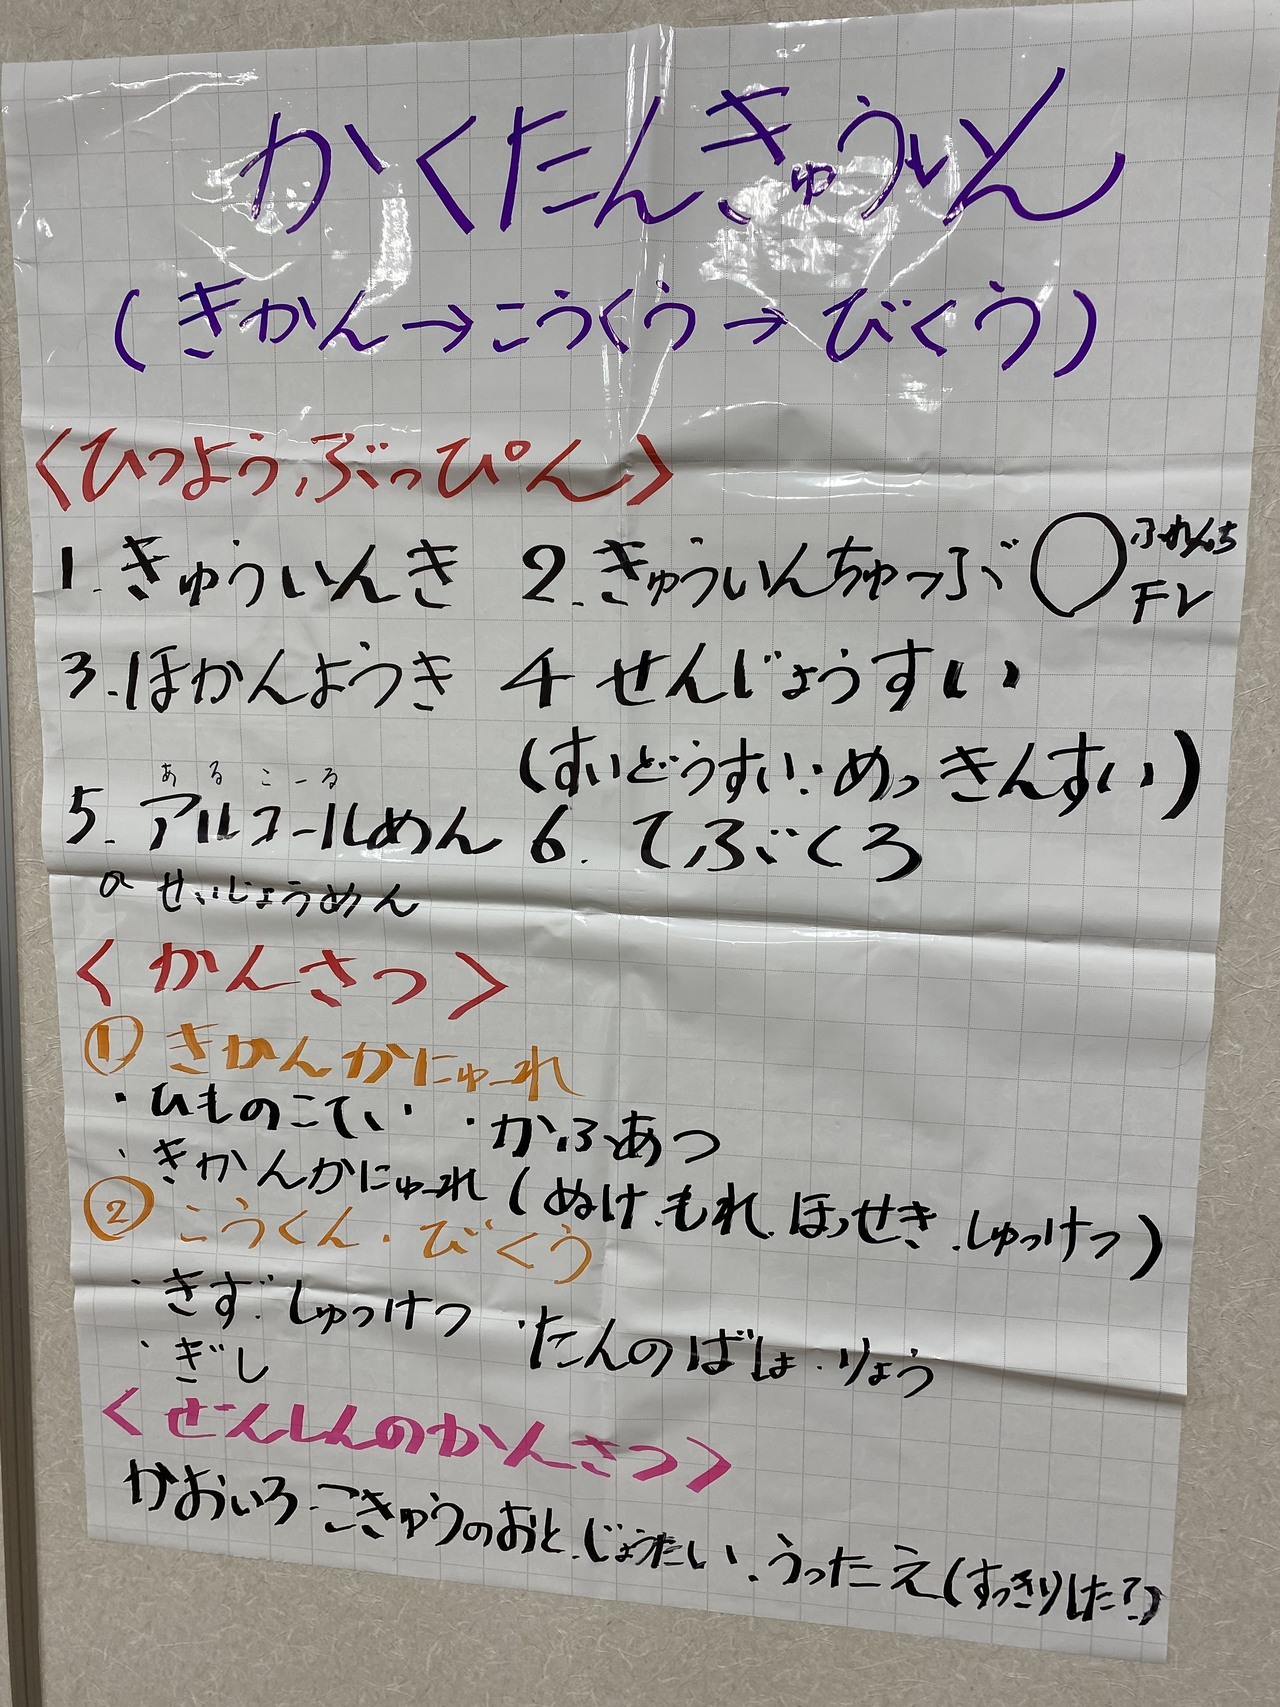 かくたんきゅういん
(きかん→こうくう→びくう)
〈ひつようぶっぴん〉
1.きゅういんき 2.きゅういんちゅっぶ ○ふれんち
Fr
3.ほかんようき 4 せんじょうすい
(すいどうすい・めっきんすい)
あるこーる
5.アルコールめん 6.てぶくろ
せいじょうめん
〈かんさつ〉
①きかんかにゅーれ
・ひものこてい ・かふあつ
・きかんかにゅーれ(ぬけ.もれ.ほっせき.しゅっけつ)
②こうくん.びくう
・きず.しゅっけつ ・たんのばしょ.りょう
・ぎし
〈ぜんしんのかんさつ〉
かおいろ.こきゅうのおと.じょうたい.うったえ(すっきりした?)